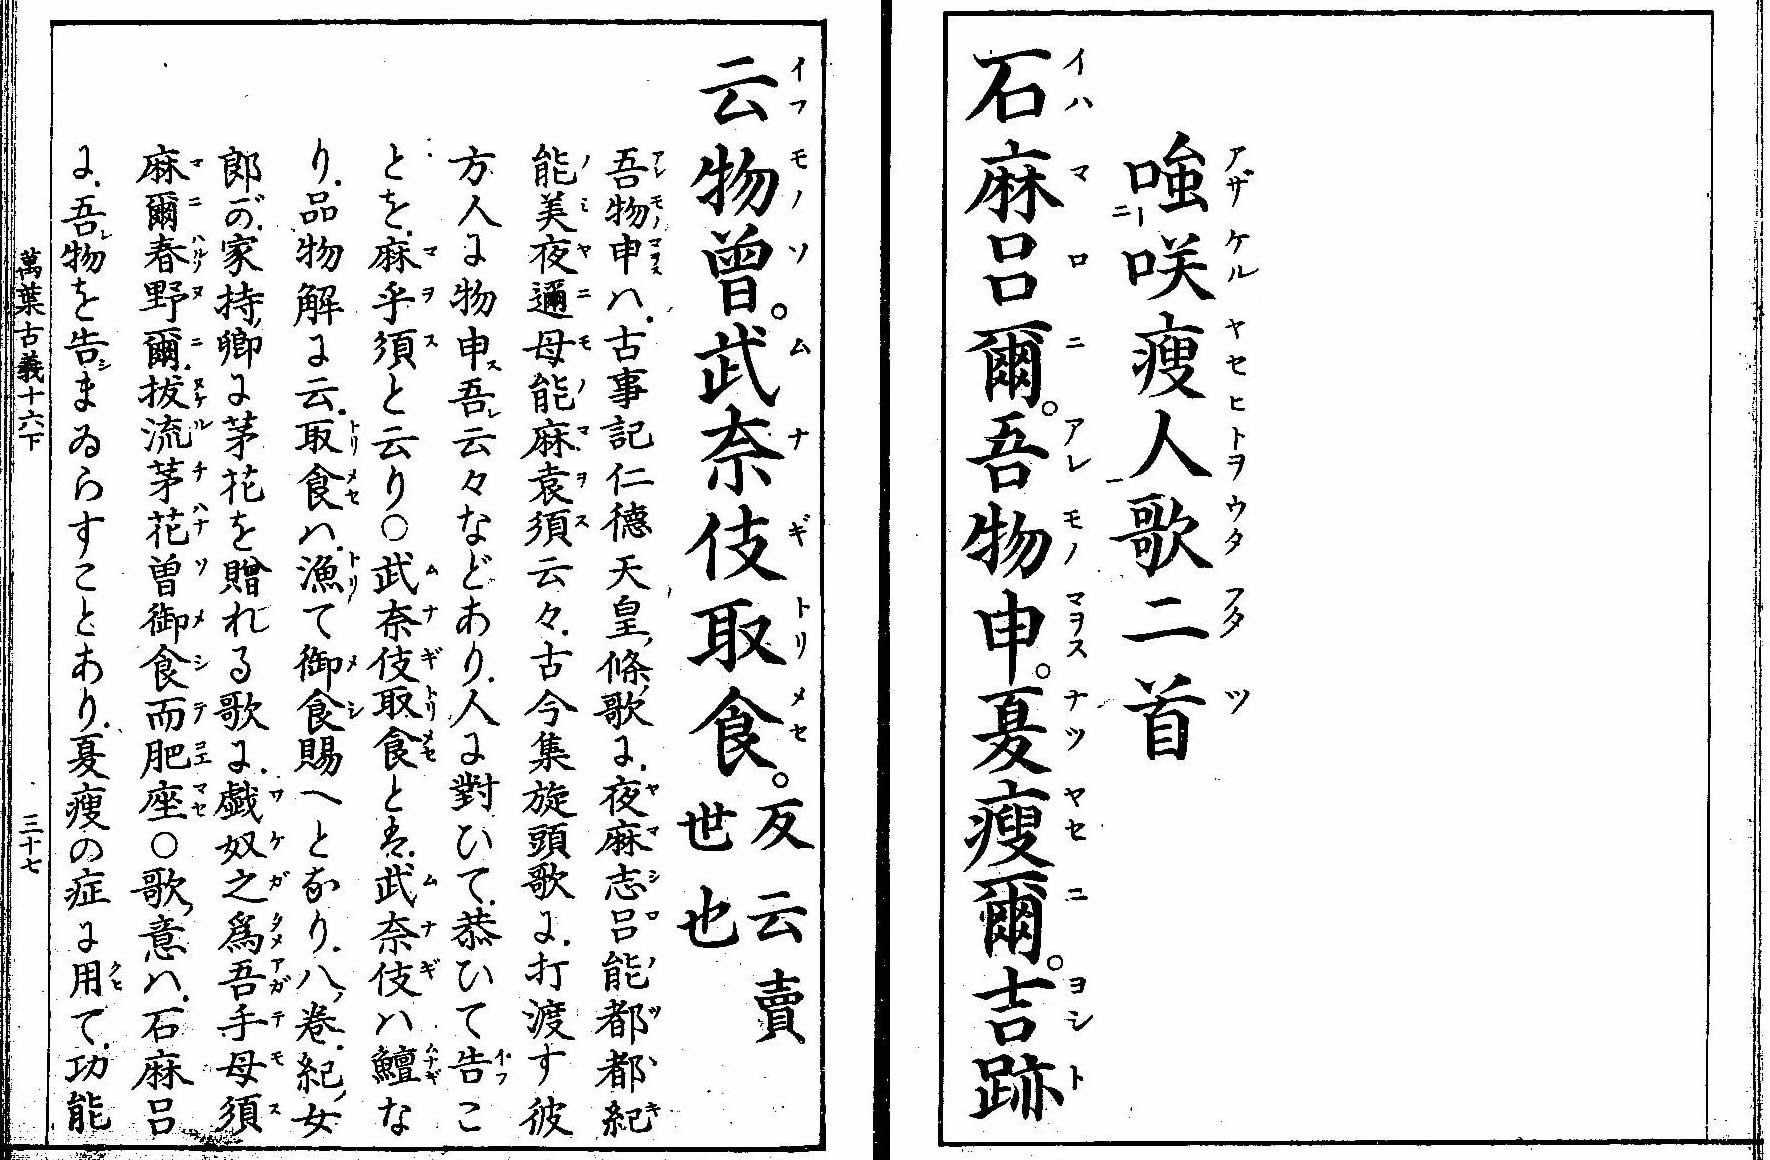 嗤咲瘦人歌二首
石麻呂爾。吾物申。夏瘦爾。吉跡
云物曾。武奈伎取食。反云賣世也
吾物申ハ、古事記仁德天皇、條、歌に、夜麻志呂能都都紀
能美夜邇母能麻袁須云々、古今集旋頭歌に、打渡す彼
方人に物申吾云々などあり、人に對ひて、恭ひて告こ
とを、麻乎須と云り○武奈伎取食とは、武奈伎ハ鱣な
り、品物解に云、取食ハ、漁て御食賜へとなり、八、卷、紀、女
郎が、家持、卿に茅花を贈れる歌に、戯奴之爲吾手母須
麻爾春野爾、拔流茅花曾御食而肥座○歌、意ハ、石麻呂
に、吾物を告まゐらすことあり、夏瘦の症に用て、功能
萬葉古義十六下 三十七